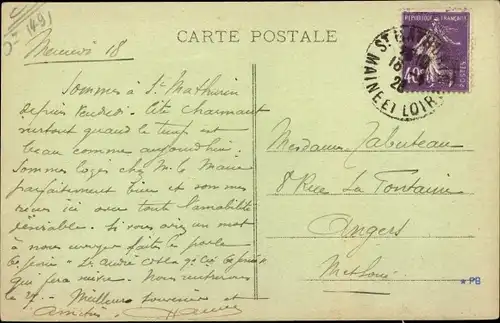 St (49)
CARTE POSTALE
Mercredi 18
Sommes à St Mathurin
depuis Vendredi. Cité charmant
surtout quand le temps est
beau comme aujourd'hui.
Sommes logés chez M. le Maire
parfaitement bien et sommes
reçus ici avec toute l'amabilité
désirable. Si vous avez un mot
à nous envoyer faites le
qui sera suivre. Nous rentrerons
le Meilleurs souvenirs et
Amitiés
REPUBLIQUE FRANÇAISE
40
POSTES
ST MATHURIN
18
MAINE ET LOIRE
Mesdames Tabuteau
8 Rue La Fontaine
Angers
M et Loire
* PB